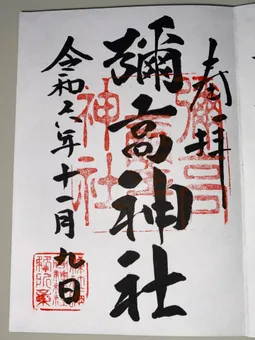 奉拝
彌高神社
令和六年十一月九日
彌高神社